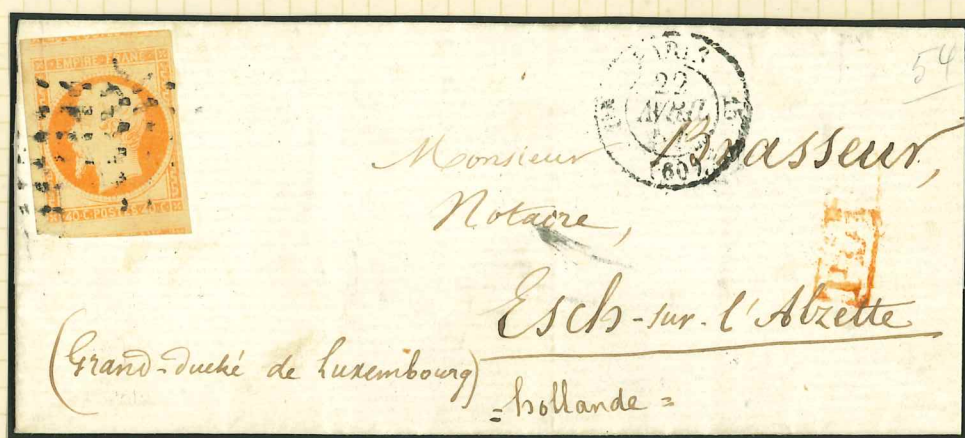 EMPIRE FRANC
40 C POSTES 40 C
PARIS
22
AVRIL
(60)
15
54
Monsieur Brasseur,
Notaire,
P.D.
Esch-sur-l'Alzette
(Grand-duché de Luxembourg)
=hollande=